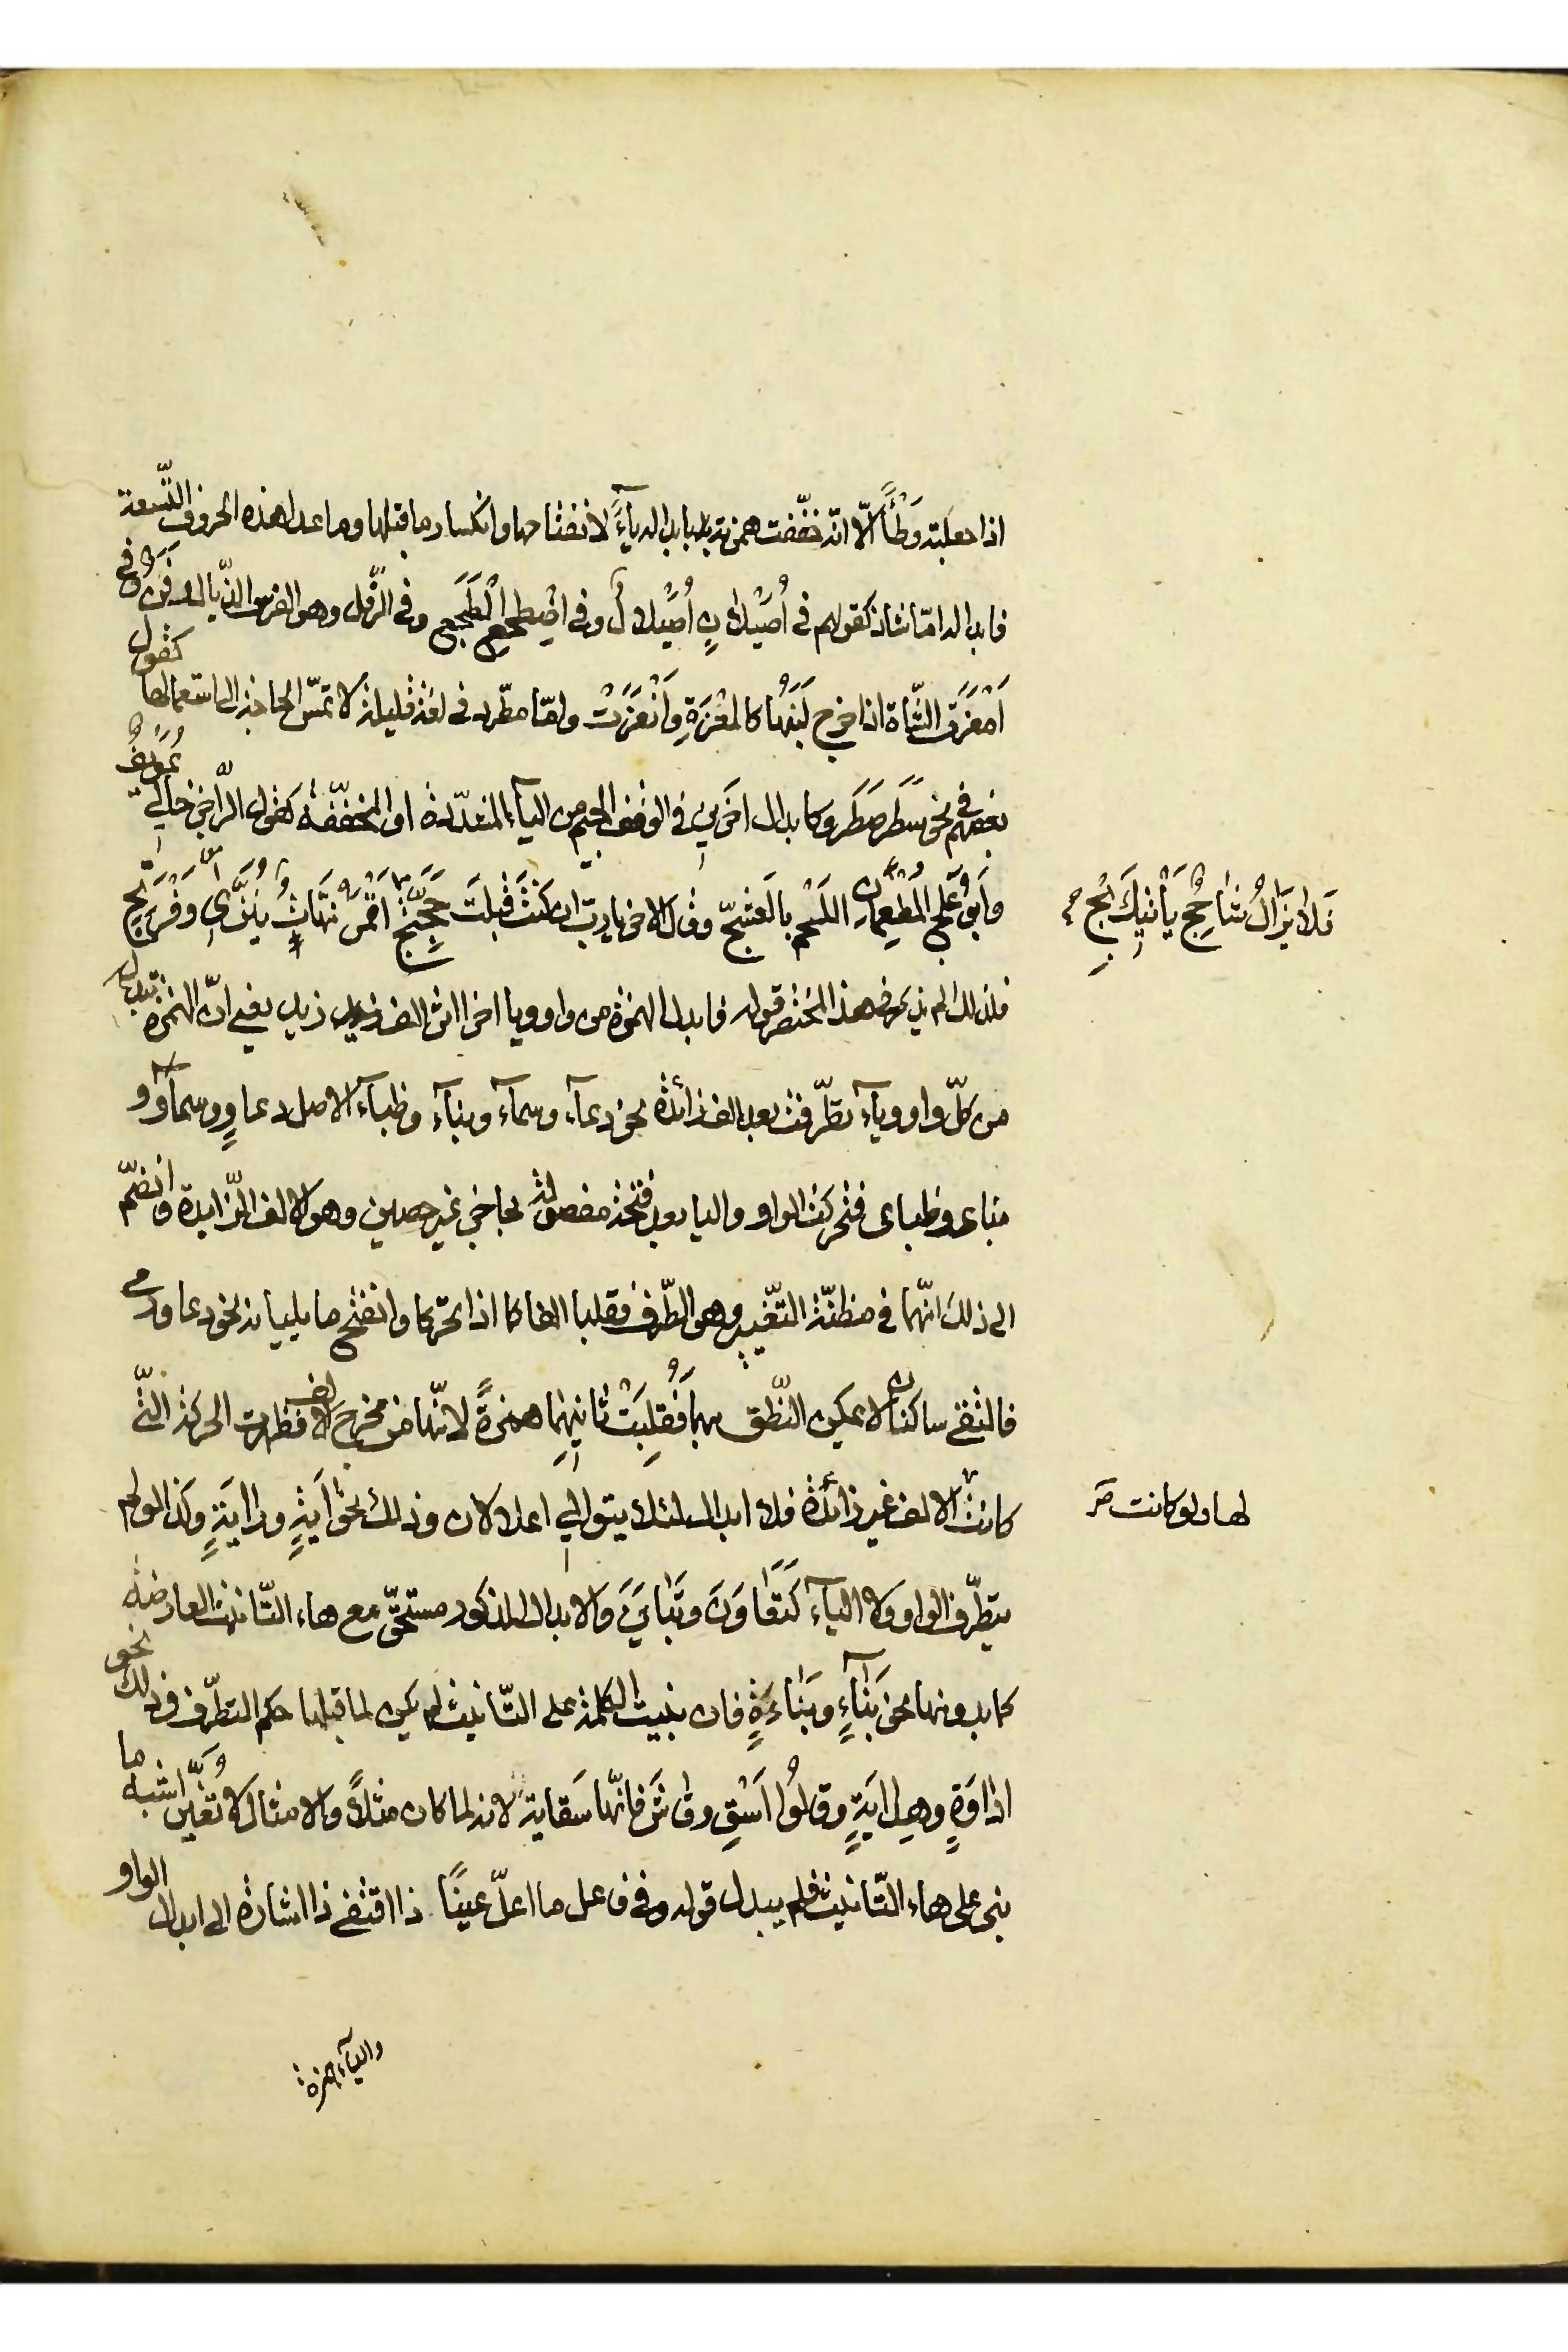 اذا جعلته وَطْأً الّا انّه خفّفت همزته بابدالها يآءً لانفتاحها وانكسار ما قبلها وما عدا هذه الحروف التّسعة
فابدالها امّا شاذ كقولهم في أُصَيْلانٍ أُصَيْلالٌ وفي اضْطجع الْطَجَع وفي الرّفل وهو الفرس الذّيال رفن وفي
اَمْغَرَتِ الشّاة اذا خرج لَبَنُها كالمغرَةِ وَاَنْغَرَتْ وامّا مطّرد في لغة قليلة لا تمسّ الحاجة الى استعمالها كقول
بعضهم في نحو سَطَرَ صَطَرَ وكابدال اخرين في الوقف الجيم من اليآء المشدّدة او المخفّفة كقول الرّاجز خالي عُوَيْفٌ
وَاَبُو عَلِجِّ المُطْعِمَانِ اللّحْم بالعَشِجّ وقال الاخر يا ربّ ان كنتَ قبلتَ حَجّتِجْ اَقْمَرُ نَهّاتٌ يُنَزِّي وَفْرَتِجْ
فَلا يَزَالُ شَاحِجٌ يَأْتِيكَ بِجْ
فلذلك لم يذكر في هذا المختصر قوله فابدل الهمزة من واو ويا اخرا اثر الف زيد يعني انّ الهمزة تبدل
من كلّ واو ويآء تطرّفت بعد الف زائدة نحو دعآء وسمآء وبنآء وظبآء الاصل دعاوٍ وسماوٌ و
بناى وظباى فتحركت الواو واليا بعد فتحة مفصولة بحاجز غير حصين وهو الالف الزّايدة وانضمّ
الى ذلك انّهما في مظنّة التّغيير وهو الطّرف فقلبا الفا كما اذا تحرّكا وانفتح ما يليانه نحو دعا ورمى
فالتقى ساكنان لا يمكن النّطق بهما فَقُلِبَتْ ثانيهما همزةً لانّها من مخرج الالف فظهرت الحركة الّتي
كانت لها ولو كانت صح
الالف غير زائدة فلا ابدال لئلا يتوالى اعلالان وذلك نحو آيَةٍ ورايَةٍ وكذا لو لم
يتطرّف الواو ولا اليآء كَتَعَاوَنَ وتَبَايَنَ والابدال المذكور مستحقّ مع هاء التّانيث العارضة
كما بدونها نحو بَنّآءٍ وبَنّاءَةٍ فان بنيت الكلمة على التّانيث لم يكن لما قبلها حكم التطرّف وذلك نحو
اداوَةٍ وهدايَةٍ وقالُوا اسْقِ رقاشَ فانّها سَقاية لانه لما كان مثلاً والامثال لا تُغَيَّر اشبه ما
بنى على هاء التّانيث فلم يبدل قوله وفي فاعل ما اعلّ عينًا ذا اقتفي ذا اشارة الى ابدال الواو
واليآء همزة